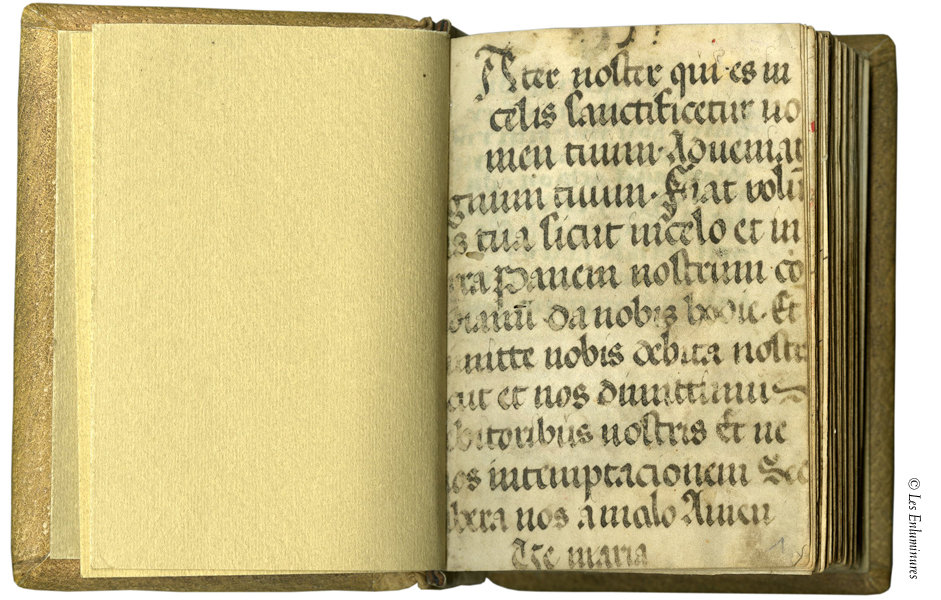 Ater noster qui es in
celis sanctificetur no
men tuum. Adveniat
gnum tuum. Fiat volū
as tua sicut in celo et in
rra Panem nostrum co
dianū da nobis hodie. Et
imitte nobis debita nostr
icut et nos dimittimus
ebitoribus nostris Et ne
nos intemptacionem Sed
ibera nos a malo Amen
Ave maria
1
© Les Enluminures